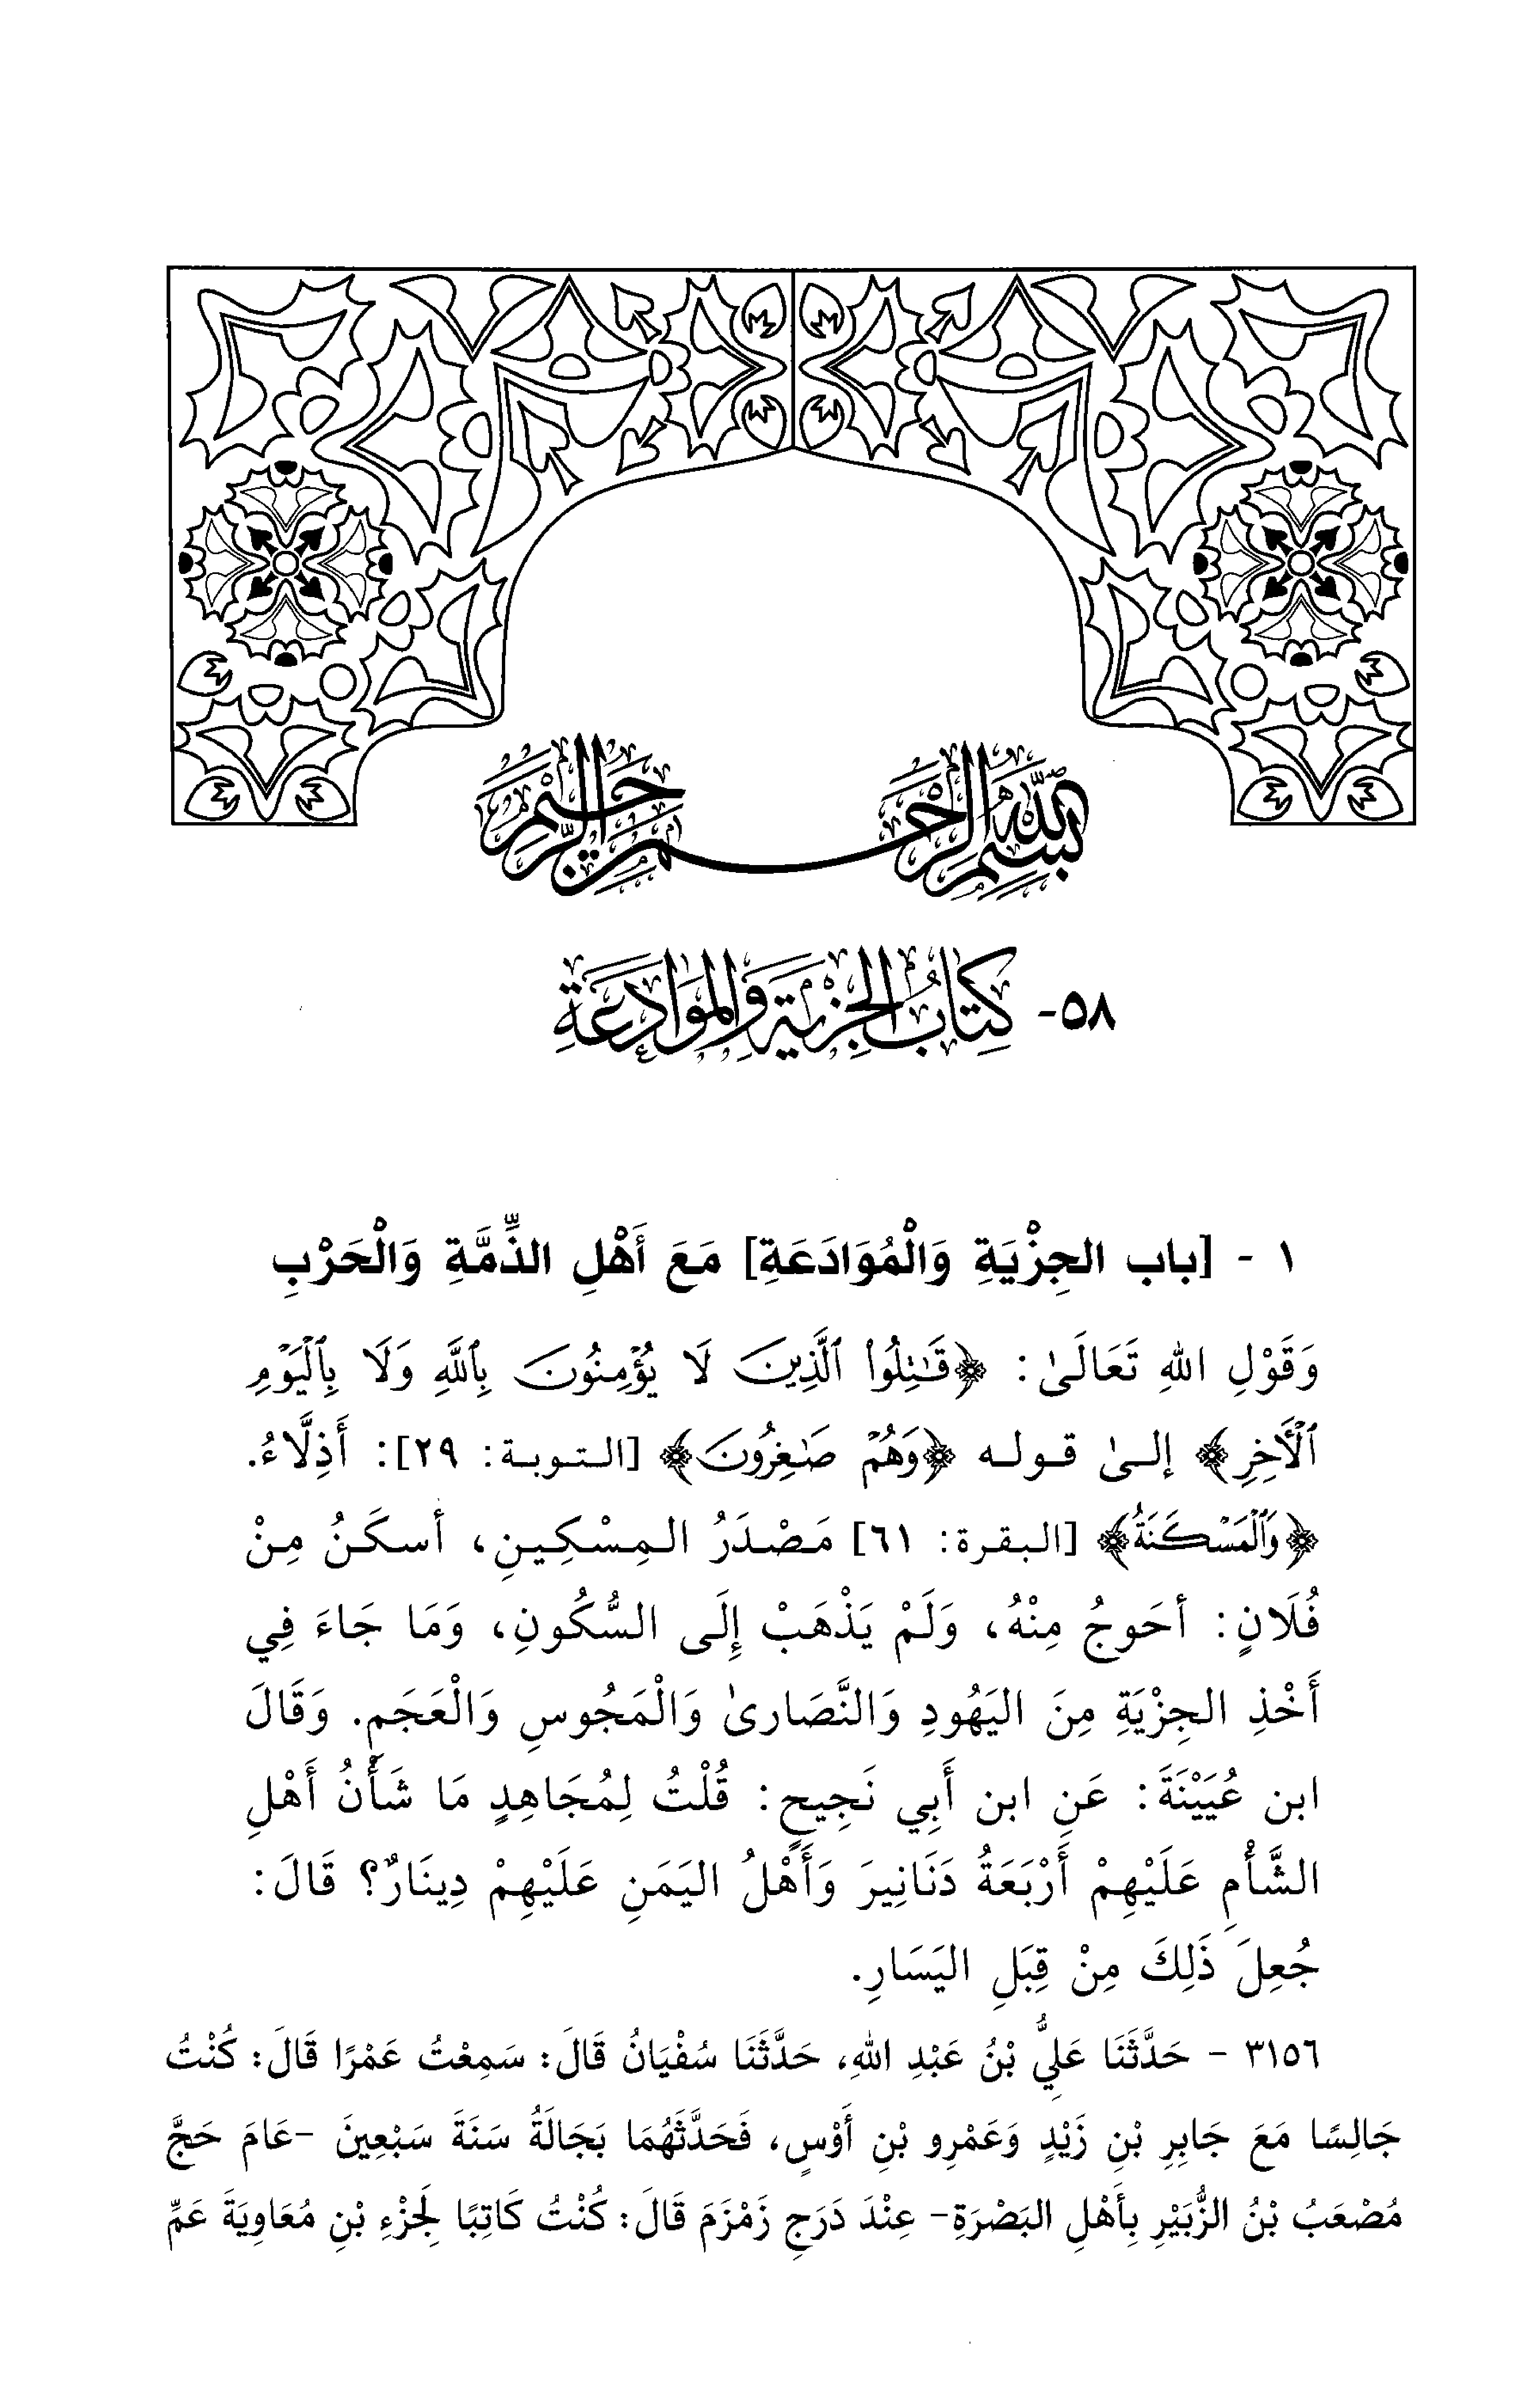 بِسْمِ اللَّهِ الرَّحْمَنِ الرَّحِيمِ
٥٨- كِتَابُ الجِزْيَةِ وَالمُوَادَعَةِ
١ - [باب الجِزْيَةِ وَالْمُوَادَعَةِ] مَعَ أَهْلِ الذِّمَّةِ وَالْحَرْبِ
وَقَوْلِ اللهِ تَعَالَىٰ: ﴿قَٰتِلُوا۟ ٱلَّذِينَ لَا يُؤْمِنُونَ بِٱللَّهِ وَلَا بِٱلْيَوْمِ
ٱلْأَخِرِ﴾ إلىٰ قوله ﴿وَهُمْ صَٰغِرُونَ﴾ [التوبة: ٢٩]: أَذِلَّاءُ.
﴿وَٱلْمَسْكَنَةُ﴾ [البقرة: ٦١] مَصْدَرُ المِسْكِينِ، أسكَنُ مِنْ
فُلَانٍ: أحَوجُ مِنْهُ، وَلَمْ يَذْهَبْ إِلَى السُّكُونِ، وَمَا جَاءَ فِي
أَخْذِ الجِزْيَةِ مِنَ اليَهُودِ وَالنَّصَارىٰ وَالْمَجُوسِ وَالْعَجَمِ. وَقَالَ
ابن عُيَيْنَةَ: عَنِ ابن أَبِي نَجِيحٍ: قُلْتُ لِمُجَاهِدٍ مَا شَأْنُ أَهْلِ
الشَّأْمِ عَلَيْهِمْ أَرْبَعَةُ دَنَانِيرَ وَأَهْلُ اليَمَنِ عَلَيْهِمْ دِينَارٌ؟ قَالَ:
جُعِلَ ذَلِكَ مِنْ قِبَلِ اليَسَارِ.
٣١٥٦ - حَدَّثَنَا عَلِيُّ بْنُ عَبْدِ اللهِ، حَدَّثَنَا سُفْيَانُ قَالَ: سَمِعْتُ عَمْرًا قَالَ: كُنْتُ
جَالِسًا مَعَ جَابِرِ بْنِ زَيْدٍ وَعَمْرِو بْنِ أَوْسٍ، فَحَدَّثَهُمَا بَجَالَةُ سَنَةَ سَبْعِينَ -عَامَ حَجَّ
مُصْعَبُ بْنُ الزُّبَيْرِ بِأَهْلِ البَصْرَةِ- عِنْدَ دَرَجِ زَمْزَمَ قَالَ: كُنْتُ كَاتِبًا لِجَزْءِ بْنِ مُعَاوِيَةَ عَمِّ